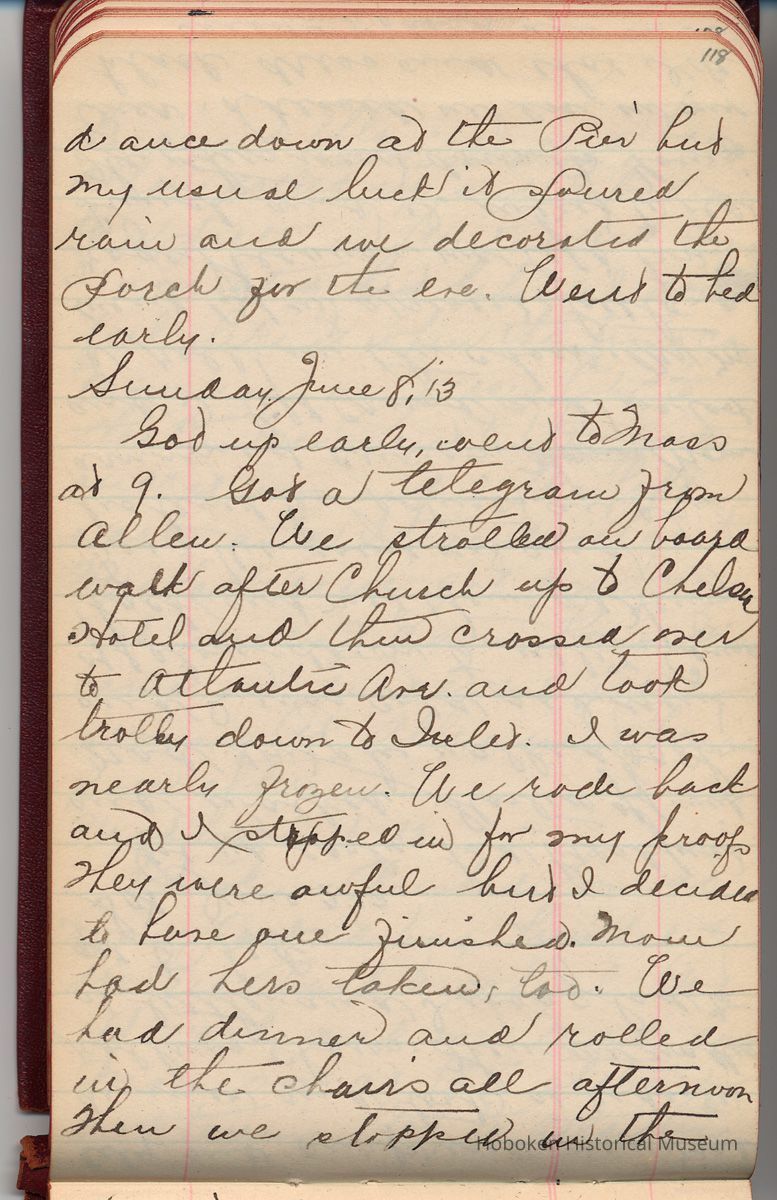 118
dance down at the Pier but
my usual luck it poured
rain and we decorated the
porch for the eve. Went to bed
early.
Sunday, June 8, 13
Got up early, went to Mass
at 9. Got a telegram from
Allen. We strolled on board
walk after Church up to Chelsea
Hotel and then crossed over
to Atlantic Ave. and took
trolly down to Inlet. I was
nearly frozen. We rode back
and I stopped in for my proofs
They were awful but I decided
to have one finished. Mom
had hers taken, too. We
had dinner and rolled
in the chairs all afternoon
Then we stopped in the
Hoboken Historical Museum